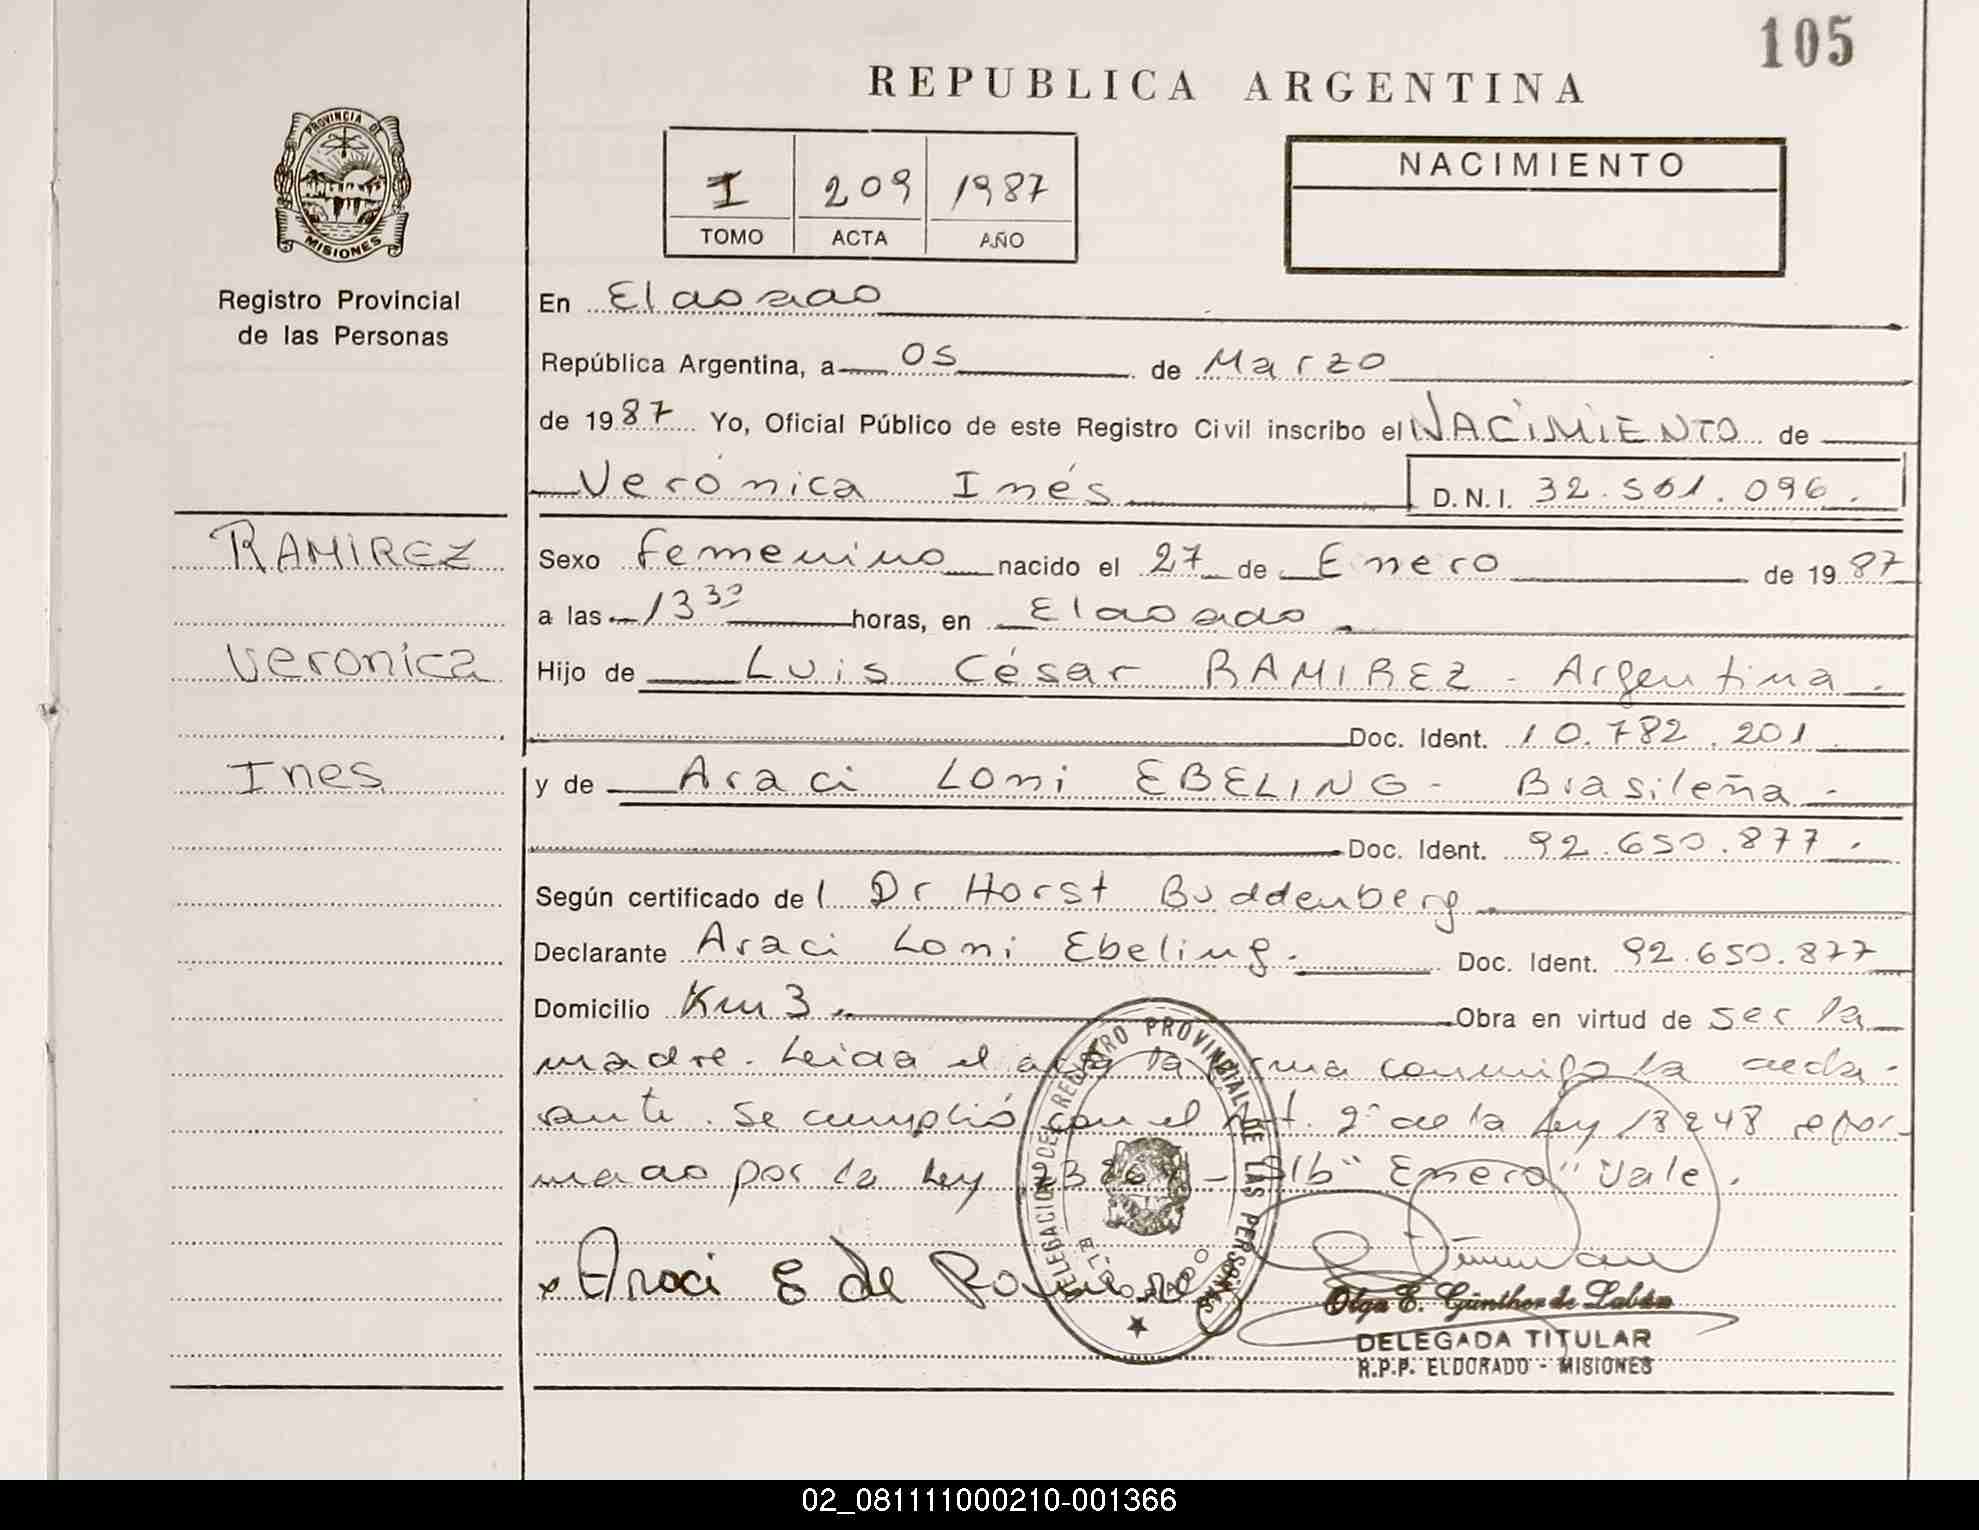 105
REPUBLICA ARGENTINA
PROVINCIA DE
MISIONES
Registro Provincial
de las Personas
I 209 1987
TOMO ACTA AÑO
NACIMIENTO
En Eldorado
República Argentina, a 05 de Marzo
de 1987 Yo, Oficial Público de este Registro Civil inscribo el NACIMIENTO de
Verónica Inés D.N.I. 32.501.096.
RAMIREZ
Veronica
Ines
Sexo femenino nacido el 27 de Enero de 1987
a las 13 30 horas, en Eldorado.
Hijo de Luis César RAMIREZ - Argentina.
Doc. Ident. 10.782.201
y de Araci Loni EBELING - Brasileña -
Doc. Ident. 92.650.877.
Según certificado del Dr Horst Buddenberg
Declarante Araci Loni Ebeling. Doc. Ident. 92.650.877
Domicilio Km 3. Obra en virtud de ser la
madre. Leida el acta la firma conmigo la decla-
rante. Se cumplió con el Art. 2° de la Ley 18248 refor-
mado por la Ley - S/b "Enero" Vale.
Araci E de Ramirez
DELEGACION DEL REGISTRO PROVINCIAL DE LAS PERSONAS
ELDORADO
Olga E. Günther de Labán
DELEGADA TITULAR
R.P.P. ELDORADO - MISIONES
02_081111000210-001366